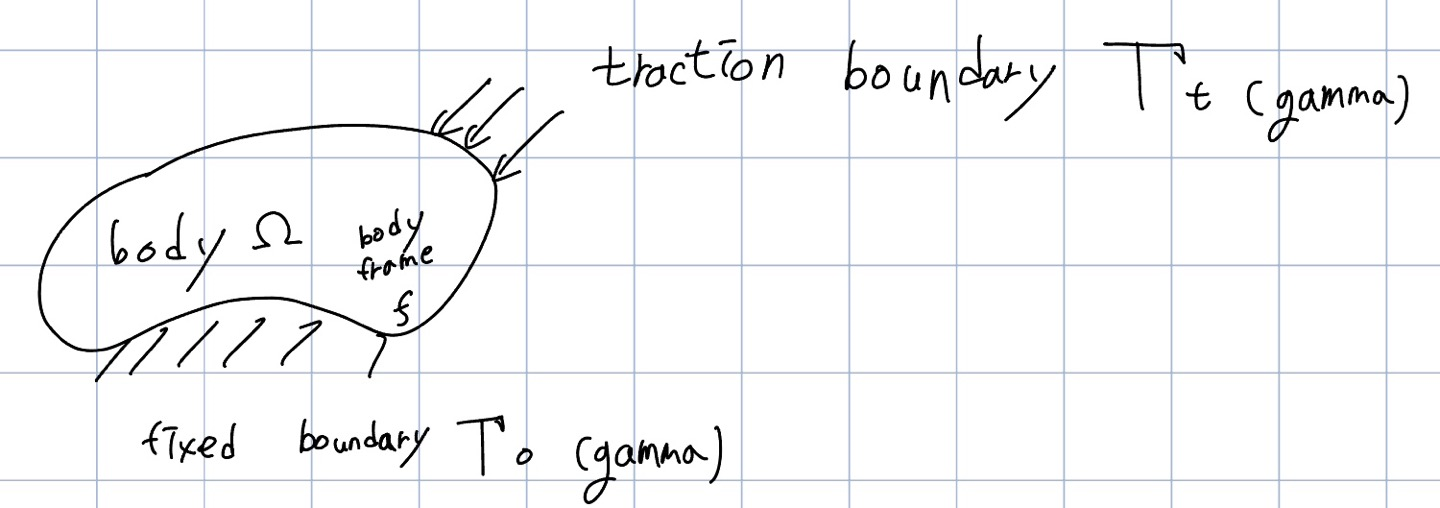 traction boundary Γt (gamma)
body Ω
body
frame
f
fixed boundary Γ0 (gamma)